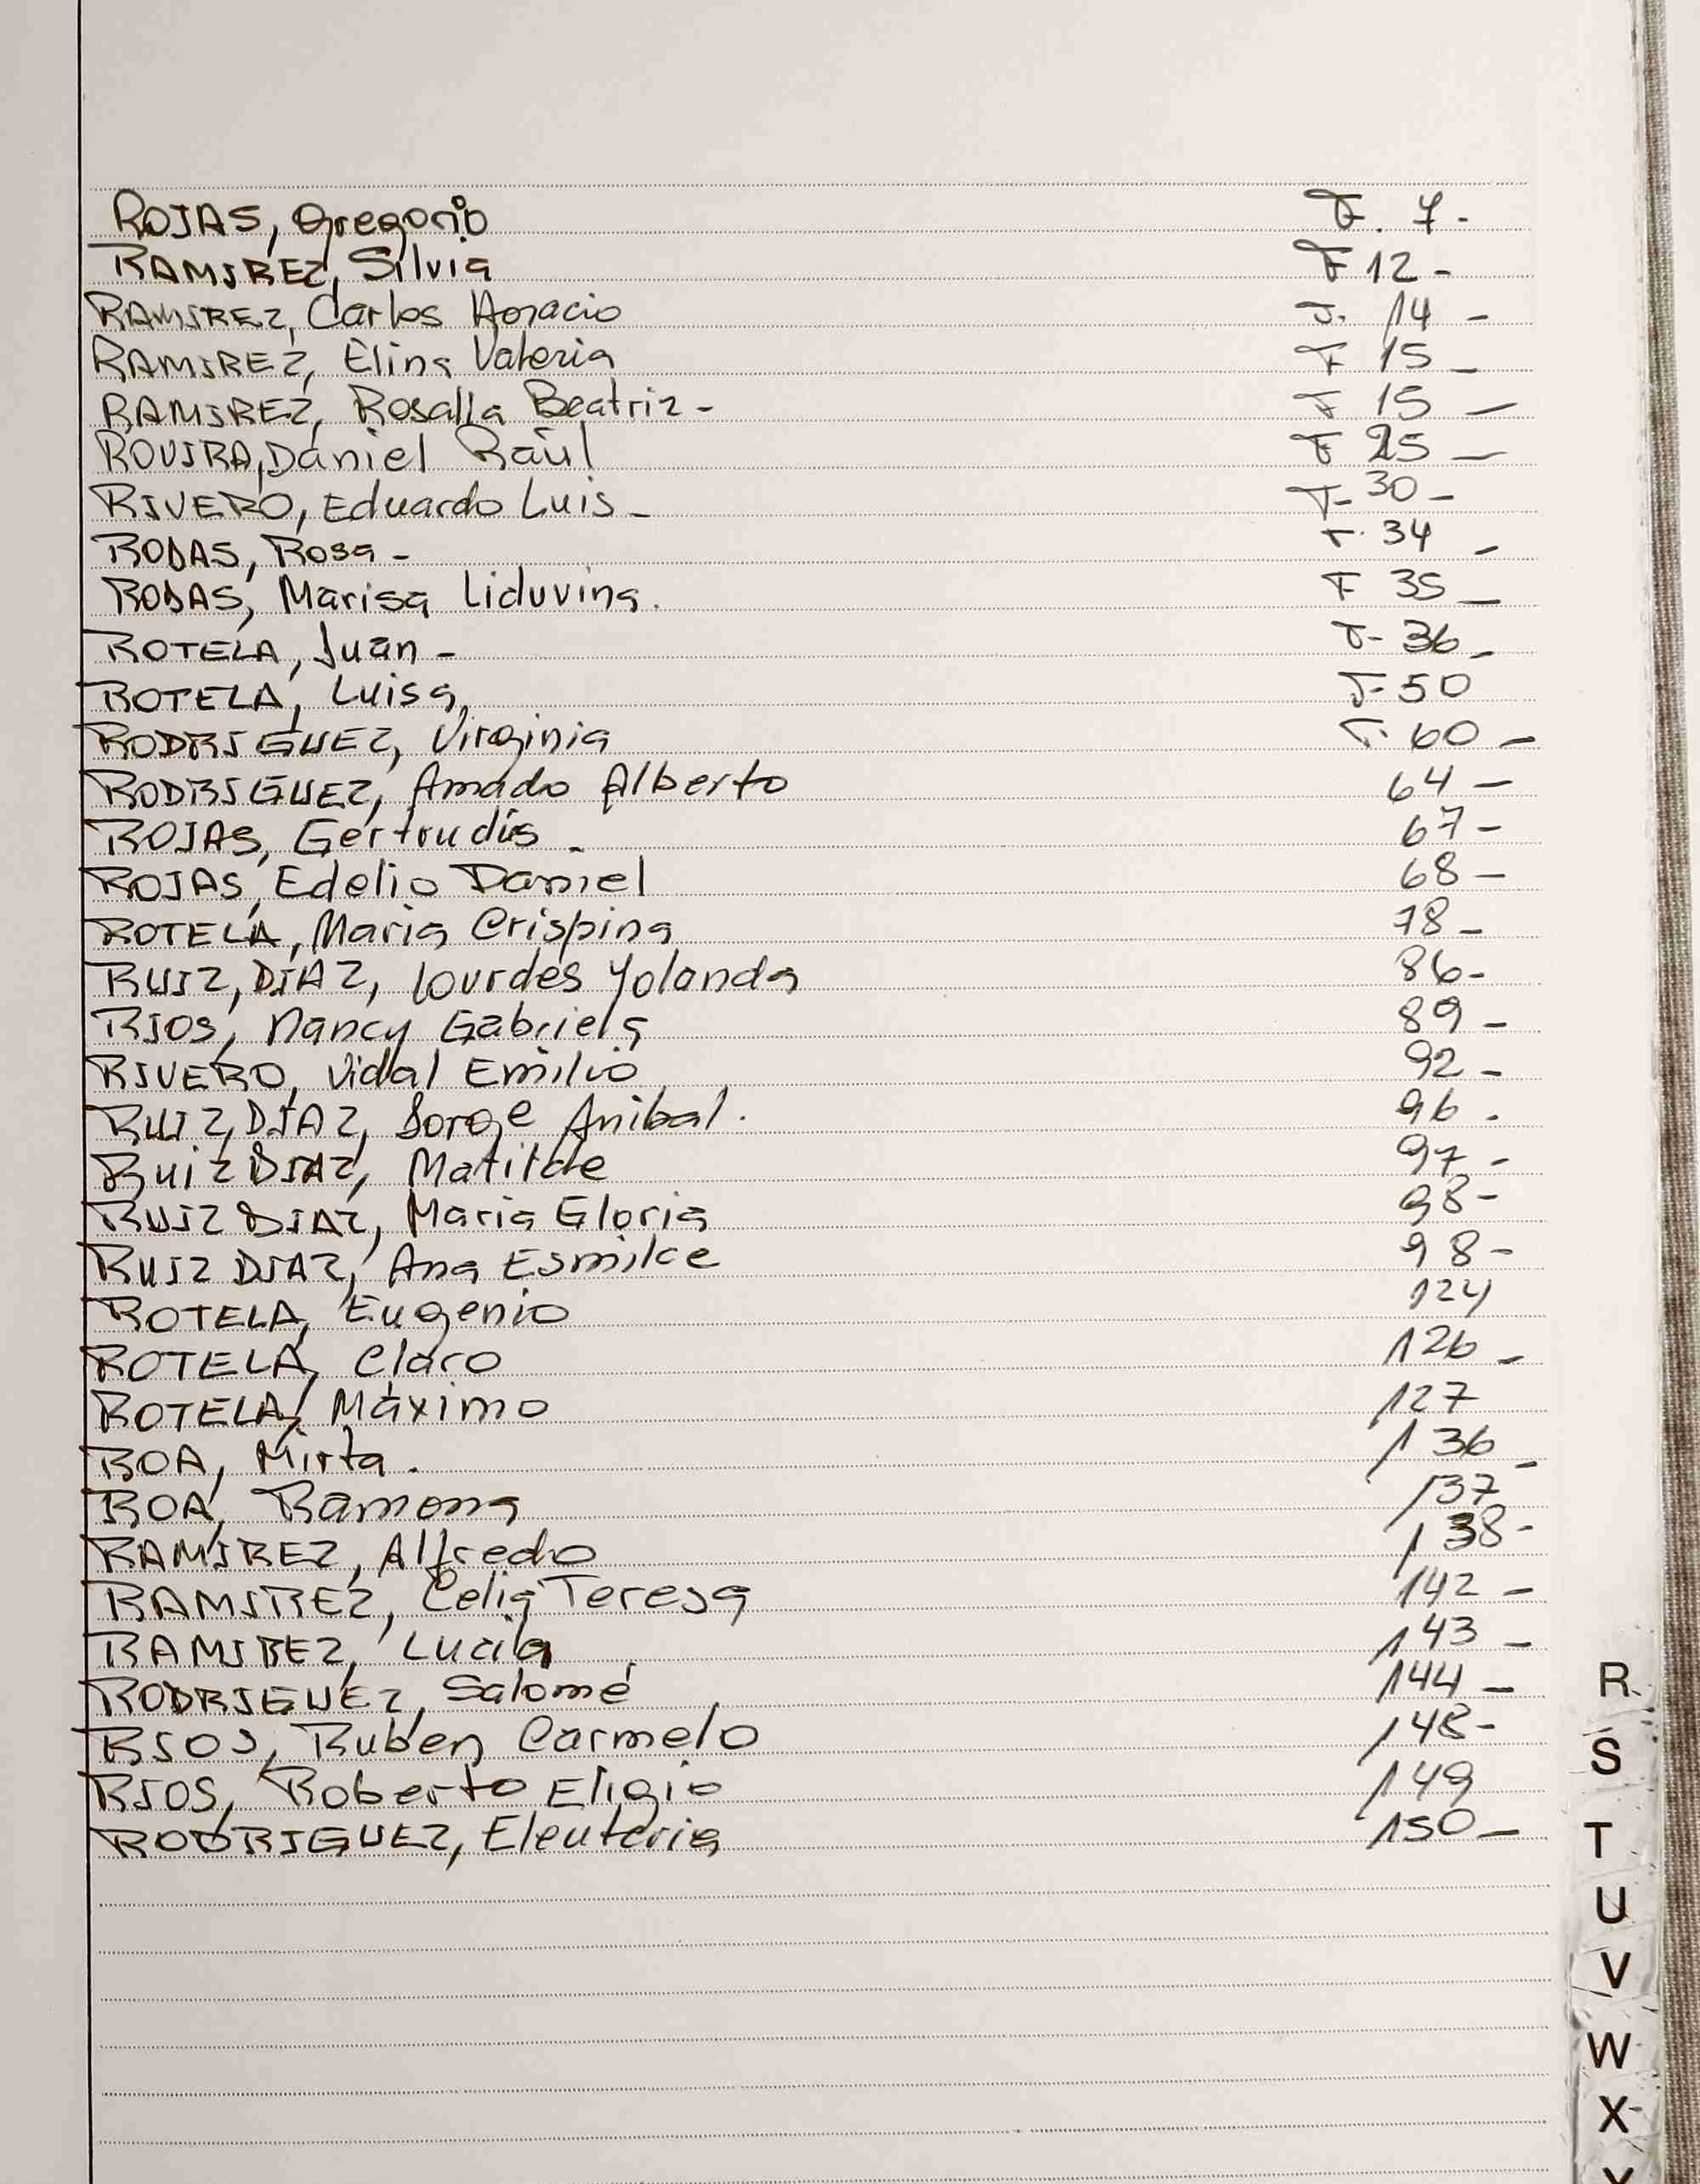 ROJAS, Gregorio F. 7.-
RAMIREZ, Silvia F 12-
RAMIREZ, Carlos Horacio F. 14 -
RAMIREZ, Elina Valeria F 15 -
RAMIREZ, Rosalia Beatriz - F 15 -
ROVIRA, Daniel Raúl F 25 -
RIVERO, Eduardo Luis - F- 30 -
RODAS, Rosa - F. 34 -
RODAS, Marisa Liduvina. F 35 -
ROTELA, Juan - F- 36 -
ROTELA, Luisa, F- 50
RODRIGUEZ, Virginia F. 60 -
RODRIGUEZ, Amado Alberto 64 -
ROJAS, Gertrudis - 67 -
ROJAS, Edelio Daniel 68 -
ROTELA, Maria Crispina 78 -
RUIZ, DIAZ, Lourdes Yolanda 86-
RIOS, Nancy Gabriela 89 -
RIVERO, Vidal Emilio 92 -
RUIZ, DIAZ, Jorge Anibal. 96 .
Ruiz DIAZ, Matilde 97 -
RUIZ DIAZ, Maria Gloria 98 -
RUIZ DIAZ, Ana Esmilce 98 -
ROTELA, Eugenio 124
ROTELA, Claro 126 -
ROTELA, Máximo 127
ROA, Mirta. 136 -
ROA, Ramona 137
RAMIREZ, Alfredo 138 -
RAMIREZ, Celia Teresa 142 -
RAMIREZ, Lucila 143 -
RODRIGUEZ, Salomé 144 -
RIOS, Ruben Carmelo 148 -
RIOS, Roberto Eligio 149
RODRIGUEZ, Eleuteria 150 -
R
S
T
U
V
W
X
Y